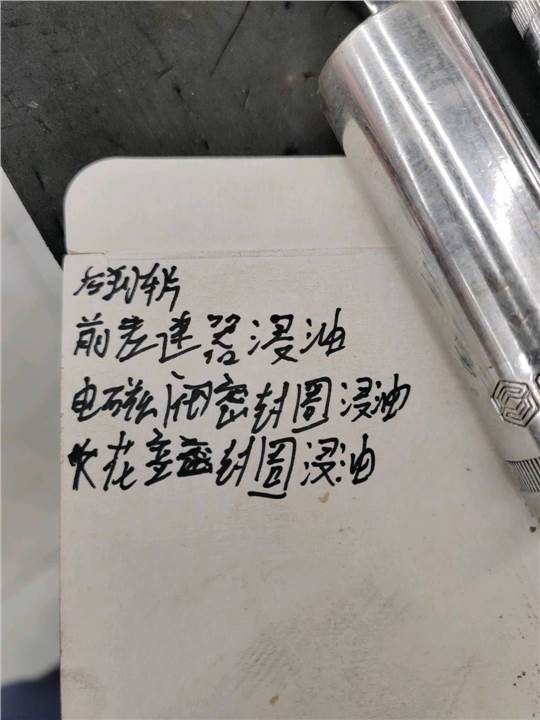 后刹车片
前差速器浸油
电磁阀密封圈浸油
火花塞密封圈浸油